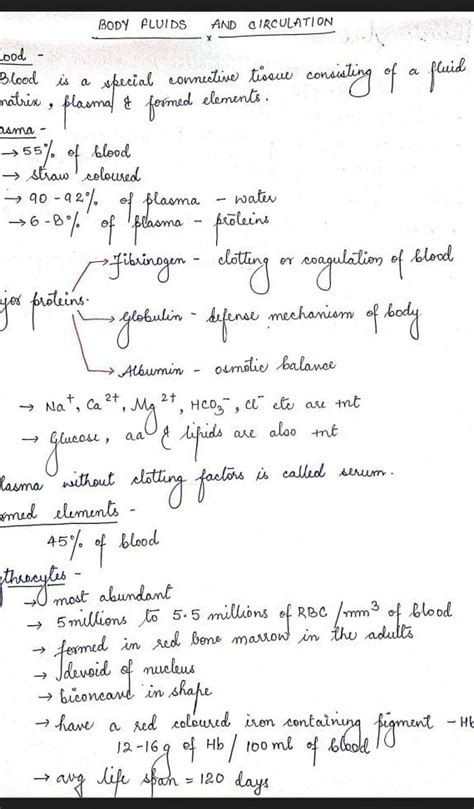 BODY FLUIDS AND CIRCULATION
x
ood -
Blood is a special connective tissue consisting of a fluid
matrix, plasma & formed elements.
asma -
→ 55% of blood
→ straw coloured
→ 90-92% of plasma - water
→ 6-8% of plasma - proteins
→ Fibrinogen - clotting or coagulation of blood
jor proteins.
→ Globulin - defense mechanism of body
→ Albumin - osmotic balance
→ Na⁺, Ca²⁺, Mg²⁺, HCO₃⁻, Cl⁻ etc are +nt
→ Glucose, aa & lipids are also +nt
lasma without clotting factors is called serum.
rmed elements -
45% of blood
ythrocytes -
→ most abundant
→ 5 millions to 5.5 millions of RBC / mm³ of blood
→ formed in red bone marrow in the adults
→ devoid of nucleus
→ biconcave in shape
→ have a red coloured iron containing pigment - Hb
12-16 g of Hb / 100 ml of blood
→ avg life span = 120 days